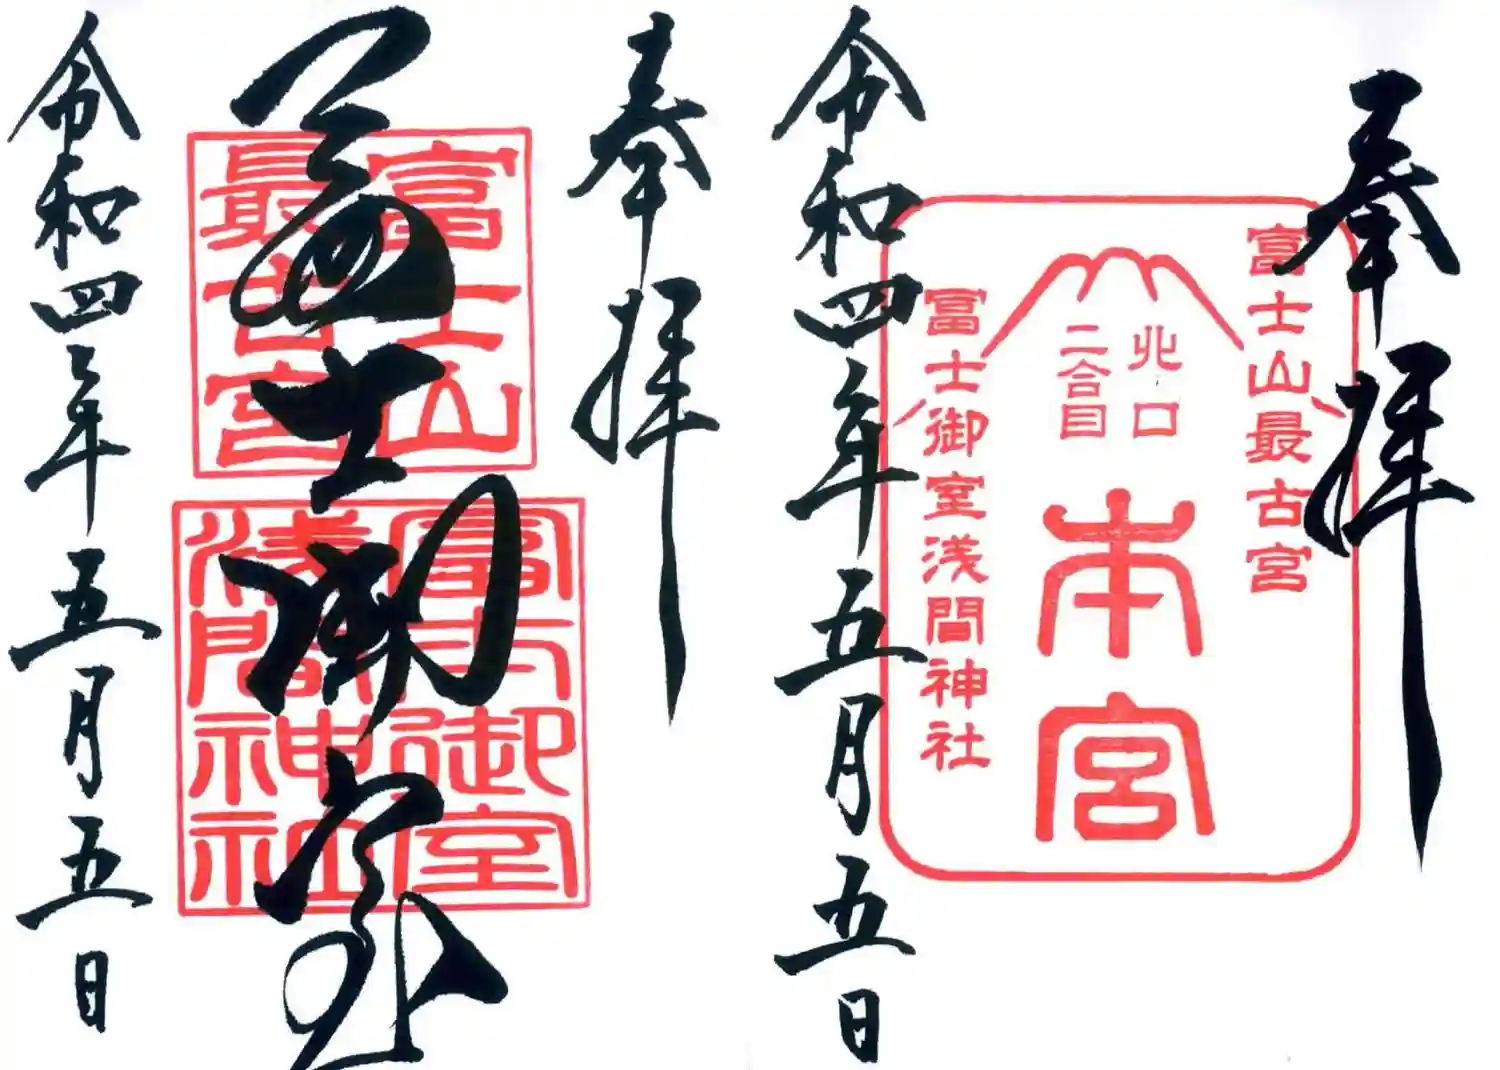 奉拝
富士山
最古宮
富士御室
浅間神社
富士御室
令和四年五月五日
奉拝
富士山最古宮
北口
二合目
本宮
富士御室浅間神社
令和四年五月五日